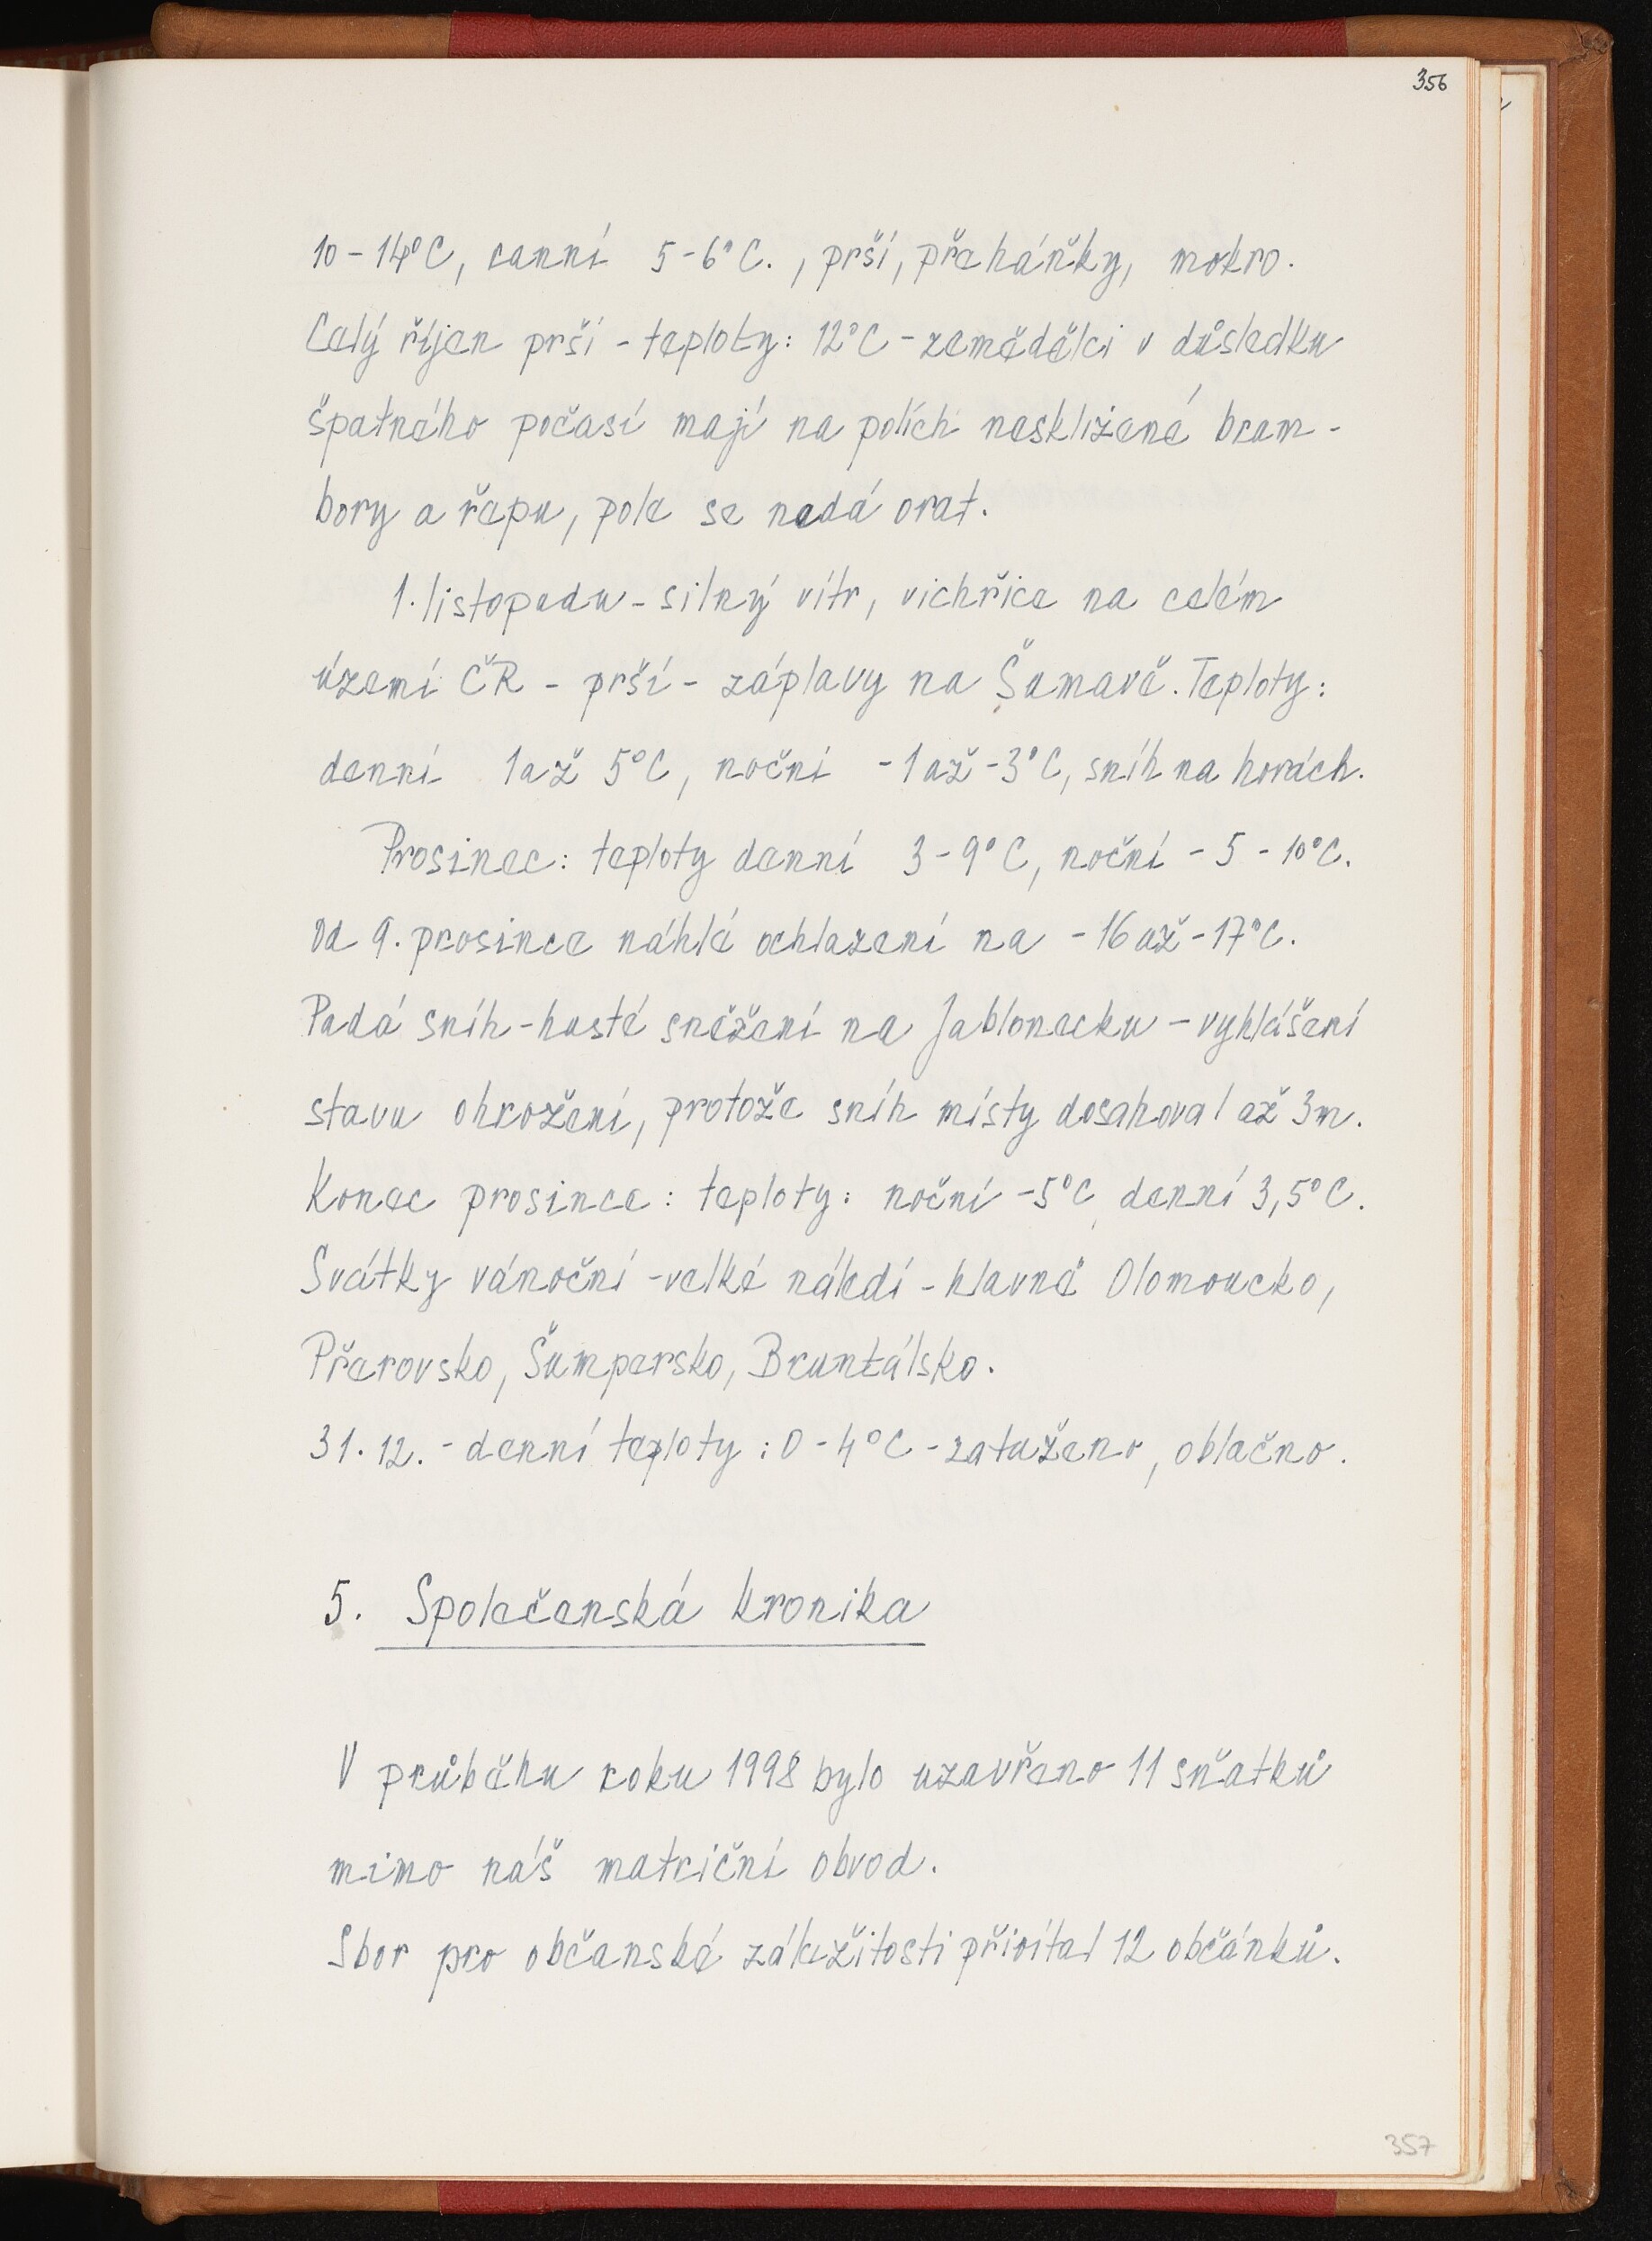 356
10-14°C, ranní 5-6°C., prší, přeháňky, mokro.
Celý říjen prší - teploty: 12°C - zemědělci v důsledku
špatného počasí mají na polích nesklizené bram-
bory a řepu, pole se nedá orat.
1. listopadu - silný vítr, vichřice na celém
území ČR - prší - záplavy na Šumavě. Teploty:
denní 1 až 5°C, noční -1 až -3°C, sníh na horách.
Prosinec: teploty denní 3-9°C, noční -5 -10°C.
Od 9. prosince náhlé ochlazení na -16 až -17°C.
Padá sníh - husté sněžení na Jablonecku - vyhlášení
stavu ohrožení, protože sníh místy dosahoval až 3m.
Konec prosince: teploty: noční -5°C, denní 3,5°C.
Svátky vánoční - velké náledí - hlavně Olomoucko,
Přerovsko, Šumpersko, Bruntálsko.
31. 12. - denní teploty: 0 - 4°C - zataženo, oblačno.
5. Společenská kronika
V průběhu roku 1998 bylo uzavřeno 11 sňatků
mimo náš matriční obvod.
Sbor pro občanské záležitosti přivítal 12 občánků.
357